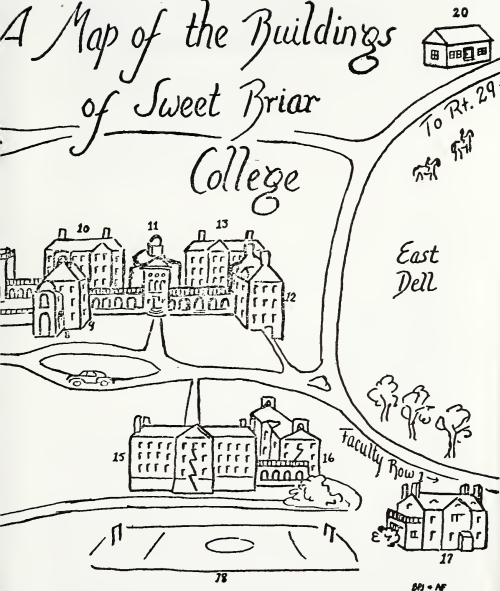 A Map of the Buildings
of Sweet Briar
College
20
To Rt. 29
10
11
13
East
Dell
12
9
8
15
16
Faculty Row
17
18
BPJ + NF